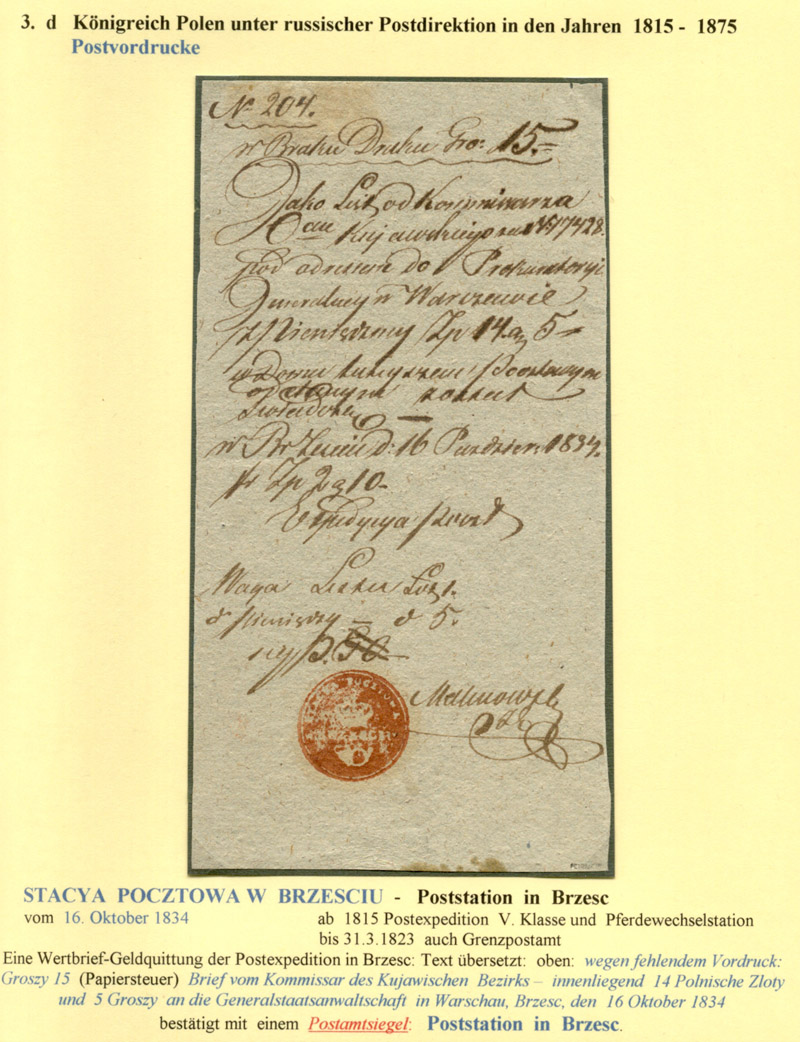 3. d Königreich Polen unter russischer Postdirektion in den Jahren 1815 - 1875
Postvordrucke
No 204.
w Braku Druku Gro: 15.=
Jako List od Kommissarza
Kujawskiego za No 17428.
pod adressem do Prokuratoryi
Generalney w Warszawie
z Pieniędzmy Zp 14 g 5
w Domu tuteyszem Pocztowym
oddanym został
w Brzesciu d: 16 Paździer: 1834.
Zp 2 g 10.
Expedycya Poczt
Waga Listu Łut 1.
d pieniędzy — d 5.
STACYA POCZTOWA
W BRZESCIU
Malinowski
STACYA POCZTOWA W BRZESCIU - Poststation in Brzesc
vom 16. Oktober 1834 ab 1815 Postexpedition V. Klasse und Pferdewechselstation
bis 31.3.1823 auch Grenzpostamt
Eine Wertbrief-Geldquittung der Postexpedition in Brzesc: Text übersetzt: oben: wegen fehlendem Vordruck:
Groszy 15 (Papiersteuer) Brief vom Kommissar des Kujawischen Bezirks – innenliegend 14 Polnische Zloty
und 5 Groszy an die Generalstaatsanwaltschaft in Warschau, Brzesc, den 16 Oktober 1834
bestätigt mit einem Postamtsiegel: Poststation in Brzesc.